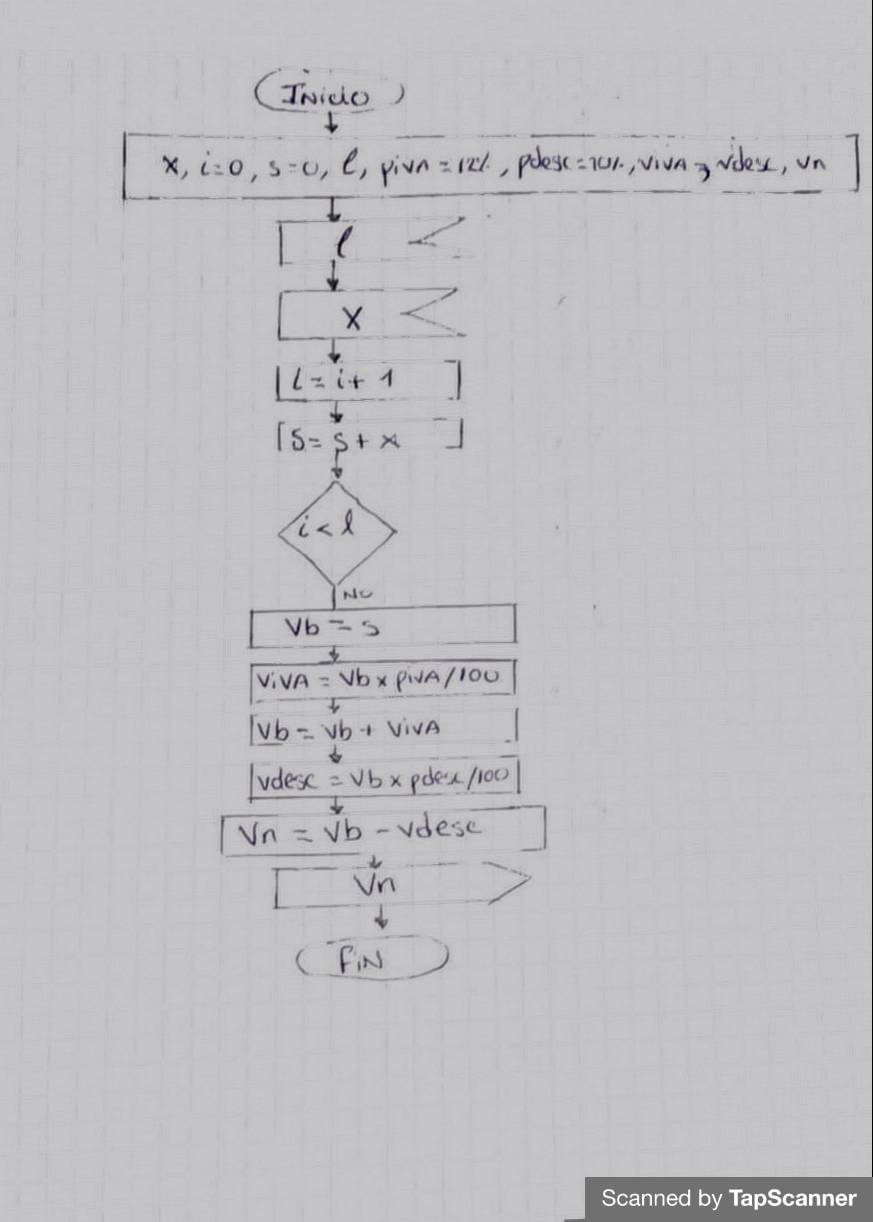 Inicio
x, i=0, s=0, l, piva = 12%, pdesc=10%, viva, vdesc, vn
l
x
i = i + 1
s = s + x
i < l
NO
Vb = s
viva = Vb x piva/100
Vb = Vb + viva
vdesc = Vb x pdesc/100
Vn = Vb - vdesc
Vn
FiN
Scanned by TapScanner